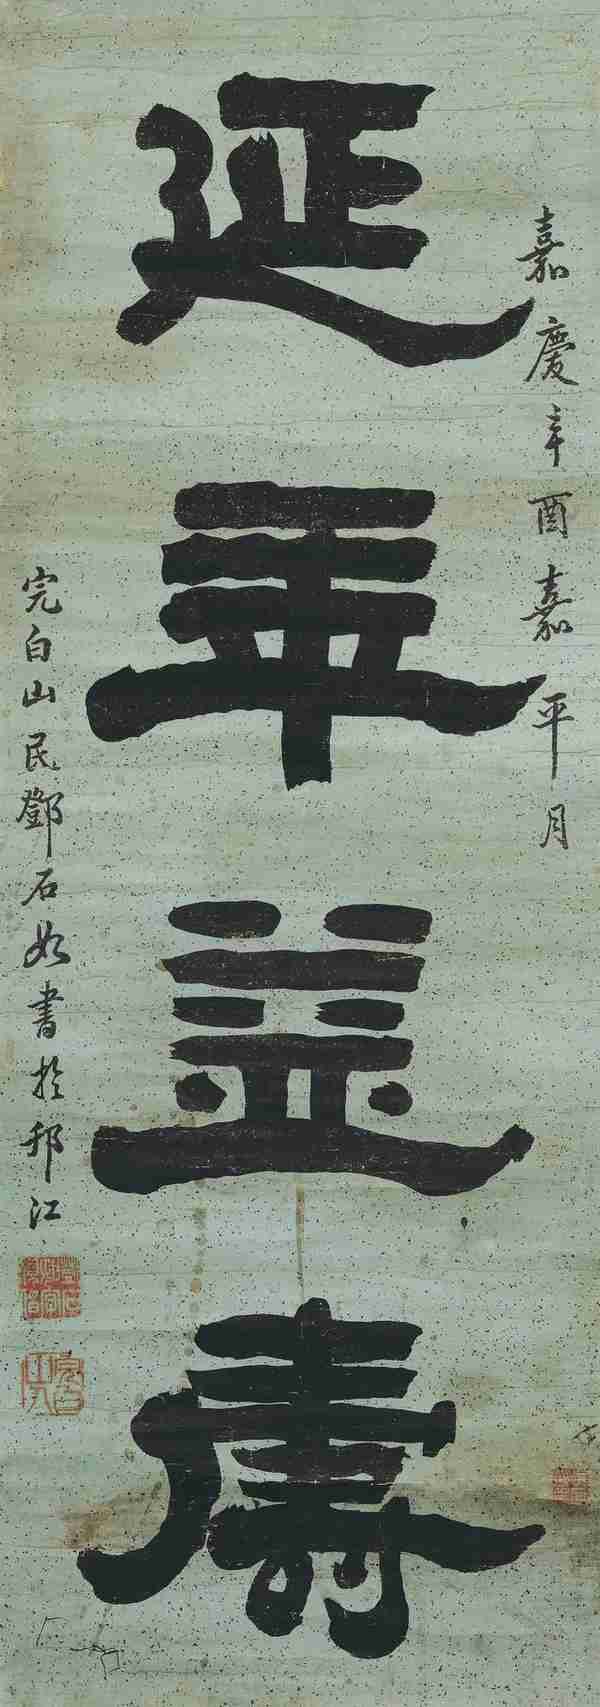 嘉慶辛酉嘉平月
延年益壽
完白山民鄧石如書於邗江